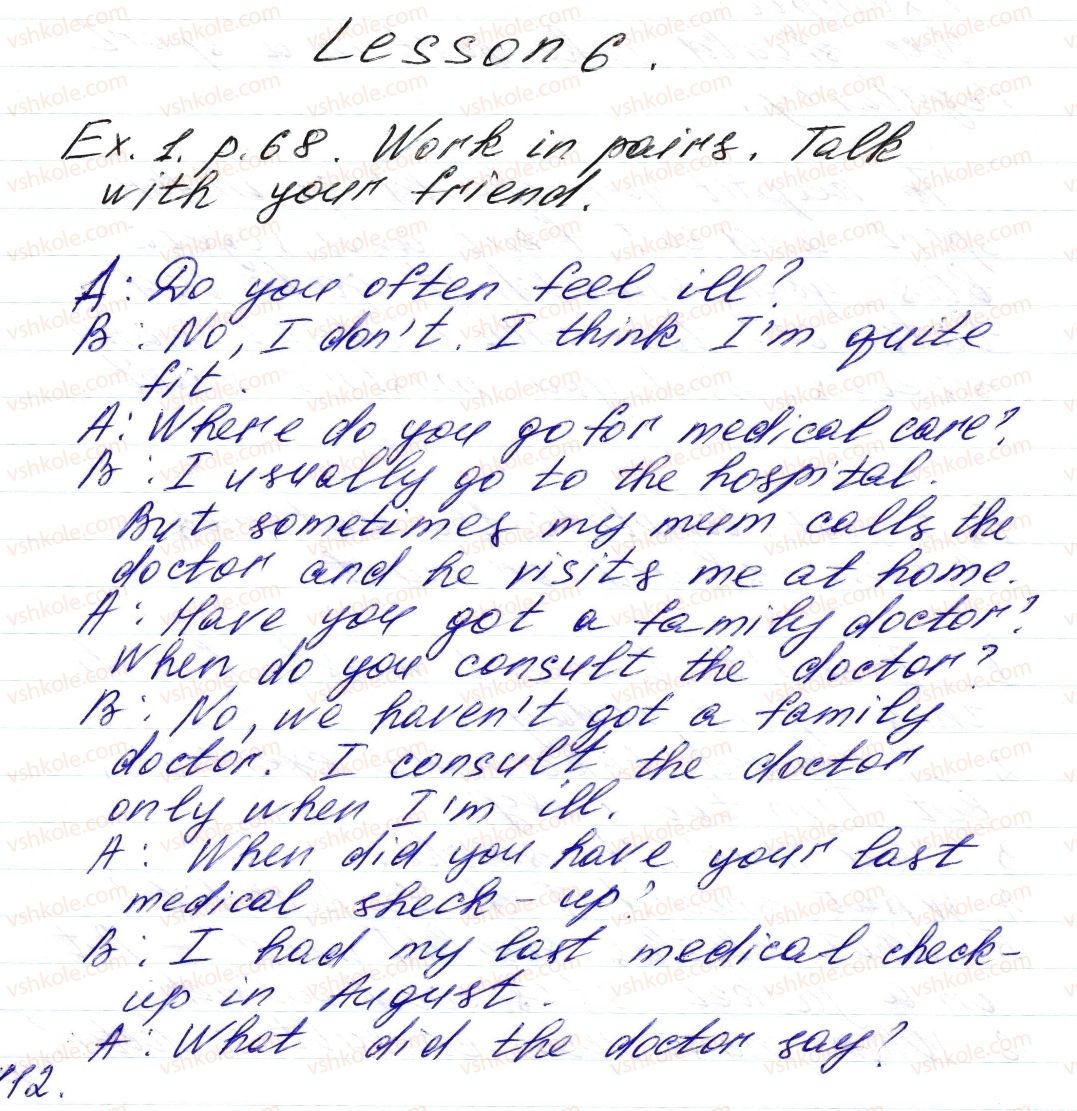 Lesson 6.
Ex. 1. p. 68. Work in pairs. Talk
with your friend.
A: Do you often feel ill?
B: No, I don't. I think I'm quite
fit.
A: Where do you go for medical care?
B: I usually go to the hospital.
But sometimes my mum calls the
doctor and he visits me at home.
A: Have you got a family doctor?
When do you consult the doctor?
B: No, we haven't got a family
doctor. I consult the doctor
only when I'm ill.
A: When did you have your last
medical sheck-up?
B: I had my last medical check-
up in August.
A: What did the doctor say?
112.